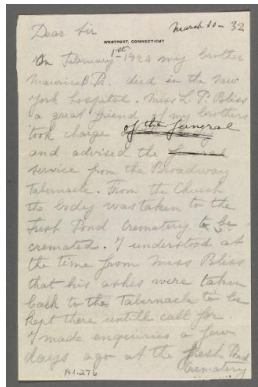 Dear Sir March 30 - 32
WESTPORT, CONNECTICUT
On February 1st - 1924 my brother
Maurice B. died in the New
York hospital. Miss L. P. Bliss
a great friend of my brothers
took charge of the funeral
and advised the funeral
service from the Broadway
Tabernacle. From the Church
the body was taken to the
Fresh Pond Crematery to be
cremated. I understood at
the time from Miss Bliss
that his ashes were taken
back to the tabernacle to be
Kept there untill call for
I made enquiries a few
days ago at the fresh Pond
Crematery